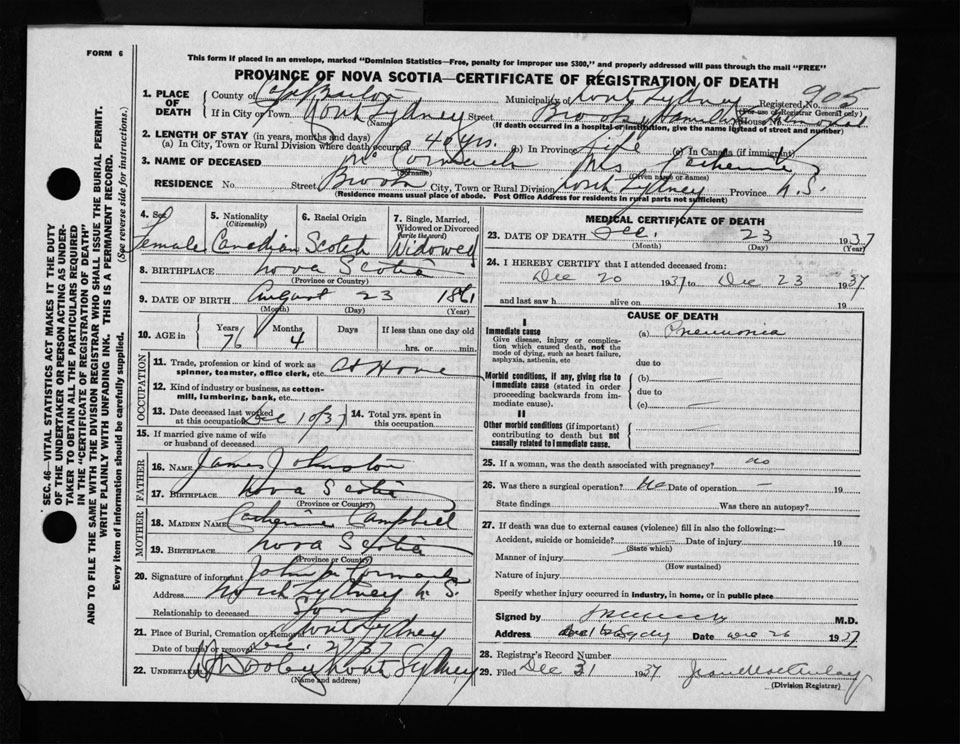 FORM 6
This form if placed in an envelope, marked "Dominion Statistics—Free, penalty for improper use $300," and properly addressed will pass through the mail "FREE"
PROVINCE OF NOVA SCOTIA—CERTIFICATE OF REGISTRATION OF DEATH
SEC. 46—VITAL STATISTICS ACT MAKES IT THE DUTY
OF THE UNDERTAKER OR PERSON ACTING AS UNDER-
TAKER TO OBTAIN ALL THE PARTICULARS REQUIRED
IN THE "CERTIFICATE OF REGISTRATION OF DEATH"
AND TO FILE THE SAME WITH THE DIVISION REGISTRAR WHO SHALL ISSUE THE BURIAL PERMIT.
WRITE PLAINLY WITH UNFADING INK. THIS IS A PERMANENT RECORD.
Every item of information should be carefully supplied. (See reverse side for instructions.)
1. PLACE OF DEATH County of Cape Breton Municipality of North Sydney Registered No. 905
(For use of Registrar General only)
If in City or Town North Sydney Street Brook Hamilton Memorial House No.
(Name) (If death occurred in a hospital or institution, give the name instead of street and number)
2. LENGTH OF STAY (in years, months and days)
(a) In City, Town or Rural Division where death occurred 40 yrs. (b) In Province Life (c) In Canada (if immigrant)
3. NAME OF DECEASED McCormack Mrs Catherine
(Surname) (Given name or names)
RESIDENCE No. Street Brook City, Town or Rural Division North Sydney Province N.S.
(Residence means usual place of abode. Post Office Address for residents in rural parts not sufficient)
4. Sex Female
5. Nationality (Citizenship) Canadian
6. Racial Origin Scotch
7. Single, Married, Widowed or Divorced (write the word) Widowed
8. BIRTHPLACE Nova Scotia
(Province or Country)
9. DATE OF BIRTH August 23 1861
(Month) (Day) (Year)
10. AGE in Years 76 Months 4 Days If less than one day old hrs. or min.
OCCUPATION
11. Trade, profession or kind of work as spinner, teamster, office clerk, etc. At Home
12. Kind of industry or business, as cotton-mill, lumbering, bank, etc.
13. Date deceased last worked at this occupation Dec 1937
14. Total yrs. spent in this occupation
15. If married give name of wife or husband of deceased
FATHER
16. NAME James Johnston
17. BIRTHPLACE Nova Scotia
(Province or Country)
MOTHER
18. MAIDEN NAME Catherine Campbell
19. BIRTHPLACE Nova Scotia
(Province or Country)
20. Signature of informant John
Address North Sydney N.S.
Relationship to deceased Son
21. Place of Burial, Cremation or Removal North Sydney
Date of burial or removal Dec. 37
22. UNDERTAKER Dooley North Sydney
(Name and address)
MEDICAL CERTIFICATE OF DEATH
23. DATE OF DEATH Dec. 23 1937
(Month) (Day) (Year)
24. I HEREBY CERTIFY that I attended deceased from:
Dec 20 1937 to Dec 23 1937
and last saw h alive on 19
CAUSE OF DEATH
I
Immediate cause
Give disease, injury or complication which caused death, not the mode of dying, such as heart failure, asphyxia, asthenia, etc
(a) Pneumonia
due to
Morbid conditions, if any, giving rise to immediate cause (stated in order proceeding backwards from immediate cause).
(b)
due to
(c)
II
Other morbid conditions (if important) contributing to death but not causally related to immediate cause.
25. If a woman, was the death associated with pregnancy? no
26. Was there a surgical operation? No Date of operation — 19
State findings Was there an autopsy?
27. If death was due to external causes (violence) fill in also the following:—
Accident, suicide or homicide? Date of injury 19
(State which)
Manner of injury
(How sustained)
Nature of injury
Specify whether injury occurred in industry, in home, or in public place
Signed by M.D.
Address Date Dec 26 1937
28. Registrar's Record Number
29. Filed Dec 31 1937
(Division Registrar)